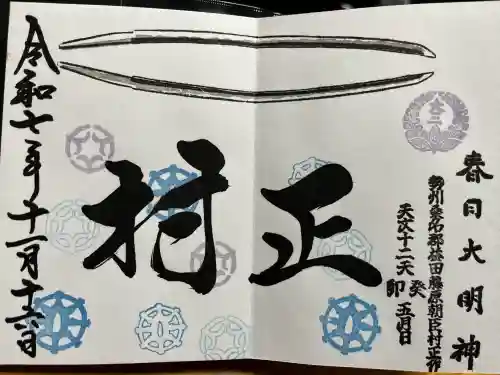 春日大明神
勢州桑名郡益田藤原朝臣村正作
天文十二天癸卯五月日
正村
令和七年十一月十六日